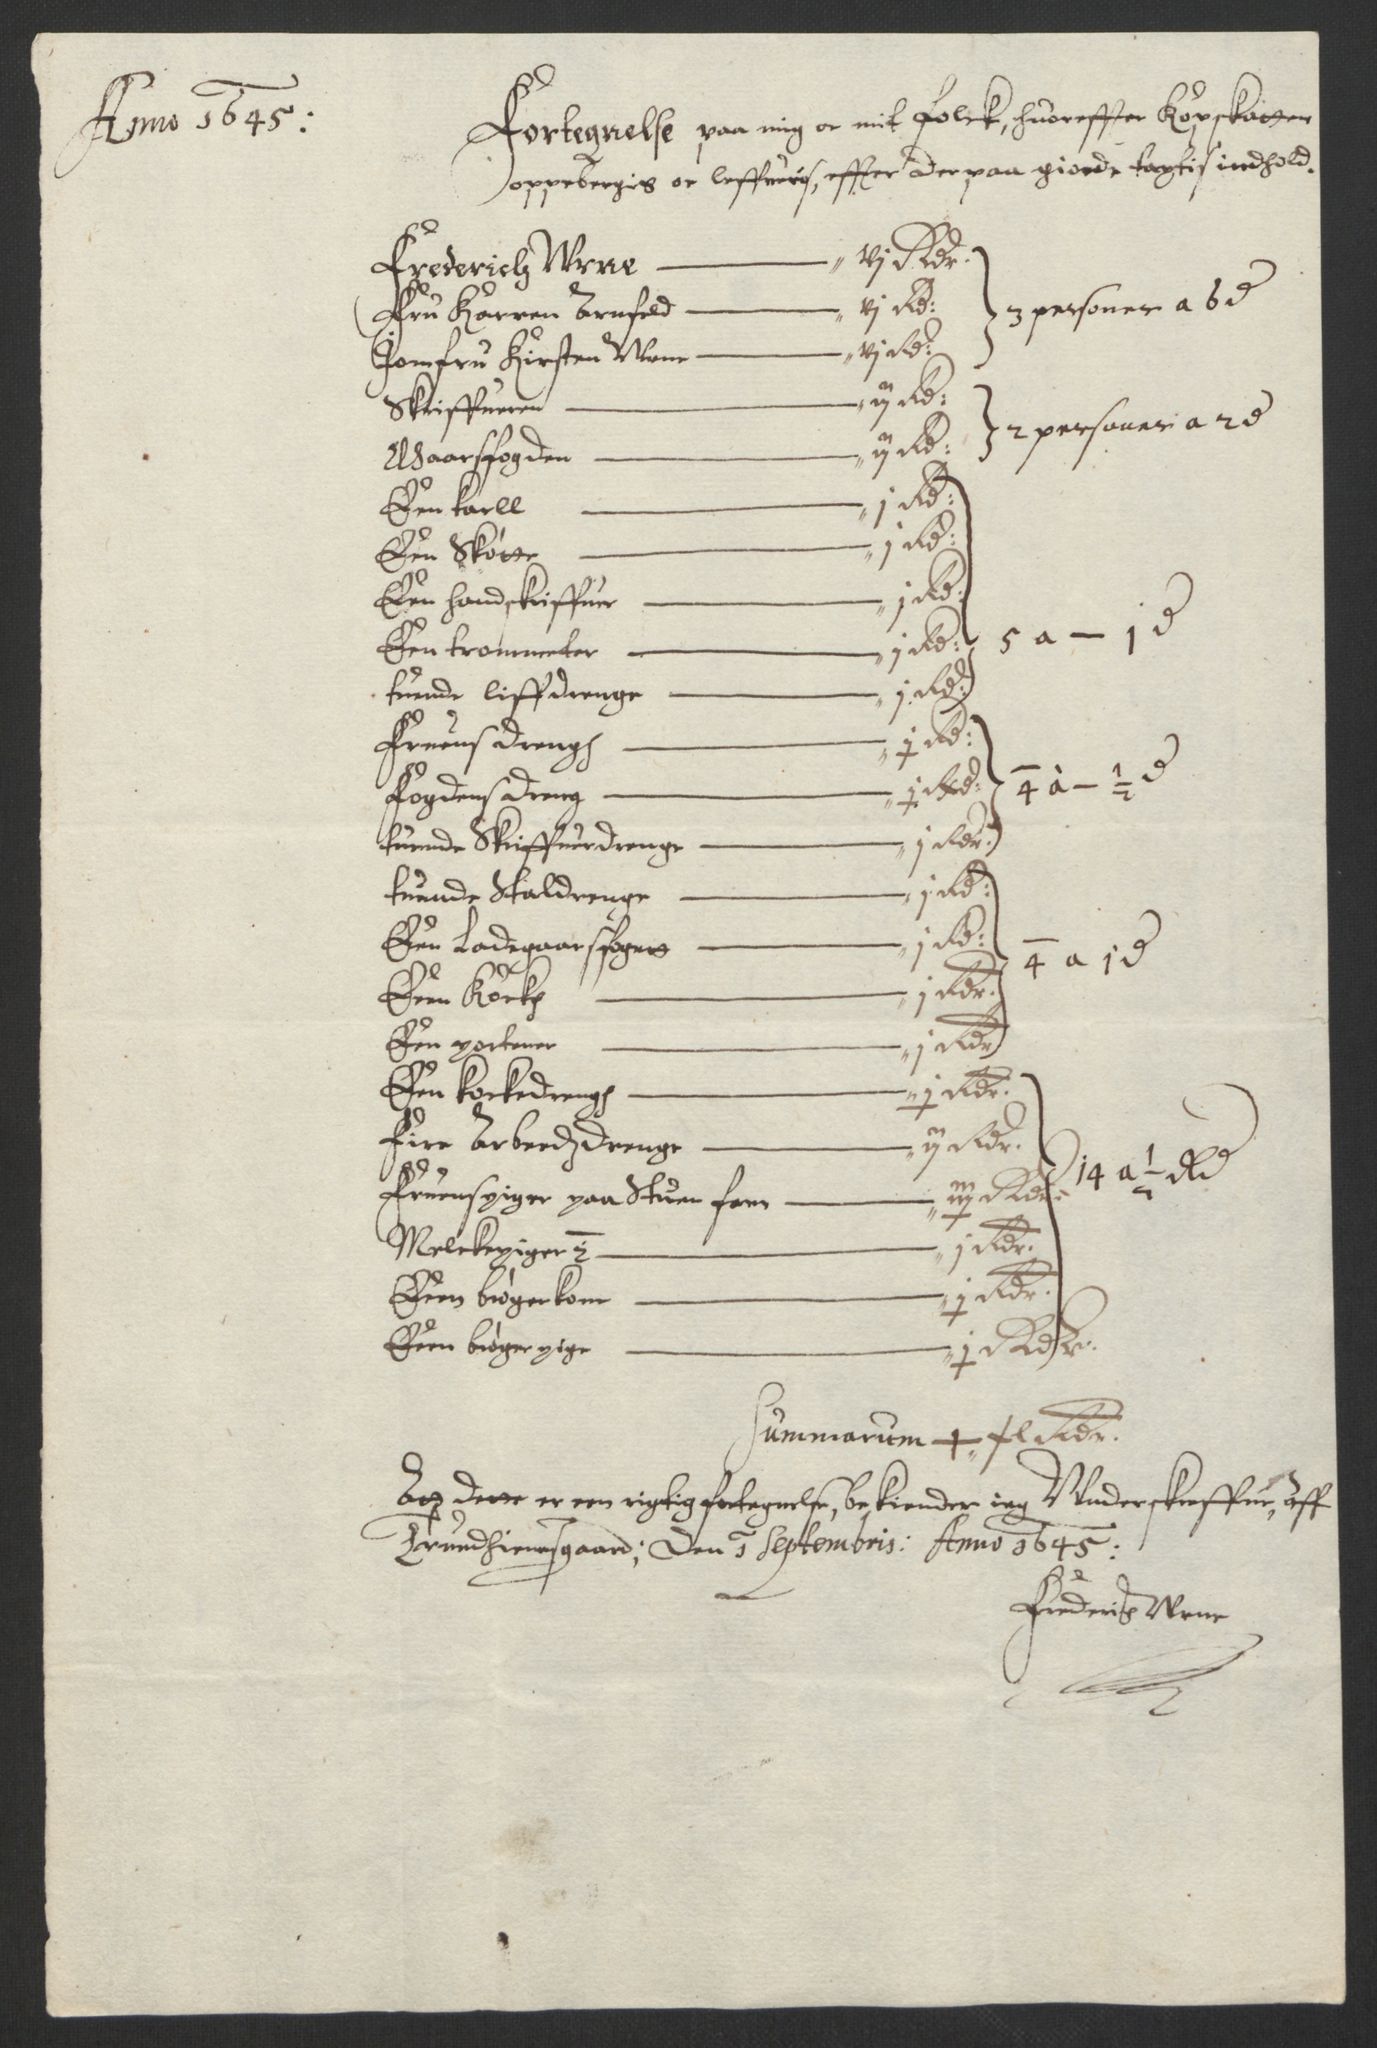 Anno 1645:
Fortegnelse paa mig oc mit Folck, huoreffter Kopskatten
oppebergis oc leffueris, effter der paa giorde taxtis indhold.
Frederich Wrne — vj Rdr. 3 personer a 6 d
Fru Karren Arnfeld — vj Rd:
Jomfru Kirsten Wrne — vj Rd:
Skriffueren — ij Rd: 2 personer a 2 d
Gaarsfogden — ij Rd:
Een karll — j Rd:
Een Skøtte — j Rd:
Een handskriffuer — j Rd:
Een trometter — j Rd: 5 a — 1 d
tuende liffdrenge — j Rd:
Fruens dreng — ½ Rd:
Fogdens dreng — ½ Rd: 4 à — ½ d
tuende Skriffuerdrenge — j Rdr.
tuende Staldrenge — j Rd:
Een Ladegaarsfoget — j Rd: 4 a 1 d
Een Kock — j Rdr.
Een portener — j Rdr
Een kockedreng — ½ Rdr.
Fire Arbeedzdrenge — ij Rdr.
Fruens piger paa Stuen fem — ij½ Rdr. 14 a ½ Rd
Melckepiger 2 — j Rdr.
Een brøgerkone — ½ Rdr.
Een brøger pige — ½ Rdr.
Summarum — xl Rdr.
At dette er een rigtig fortegnelse, bekiender ieg Underskreffne, Aff
Trundhiemsgaard; Den 1 Septembris: Anno 1645:
Frederich Wrne